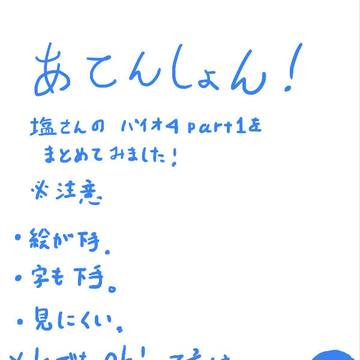 あてんしょん!
塩さんの バイオ4 part1を
まとめてみました!
※注意
・絵が下手.
・字も下手。
・見にくい。